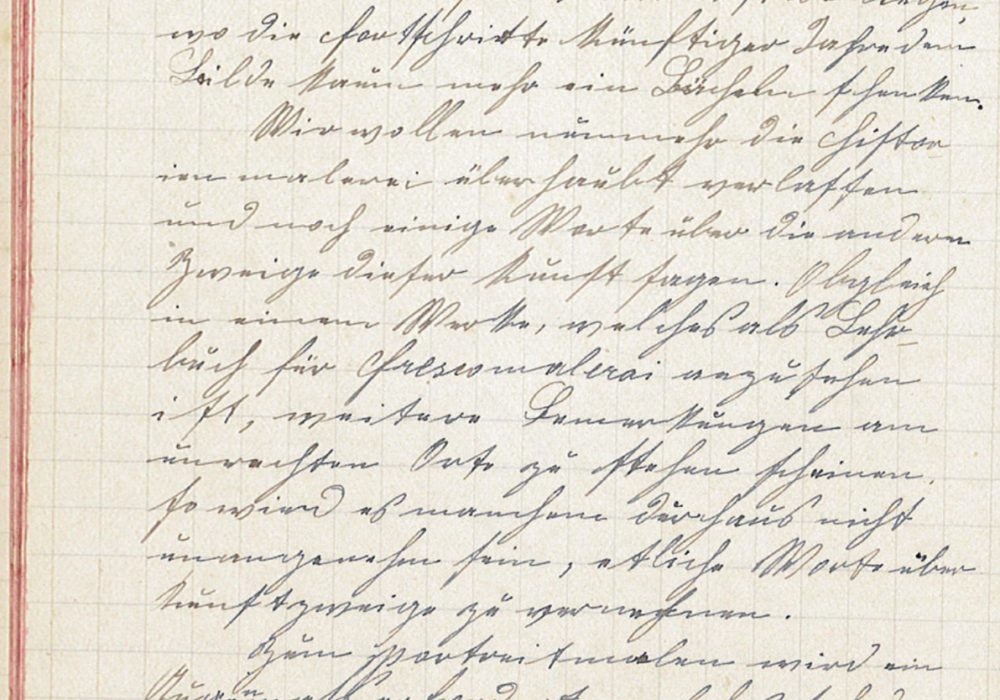 wo die Fortschritte künftiger Jahre dem
Bilde kaum mehr ein Lächeln schenken.
Wir wollen nunmehr die Histor
ienmalerei überhaubt verlassen
und noch einige Worte über die andern
Zweige dieser Kunst sagen. Obgleich
in einem Werke, welches als Lehr-
buch für Frescomalerei anzusehen
ist, weitere Bemerkungen am
unrechten Orte zu stehen scheinen,
so wird es manchem durchaus nicht
unangenehm sein, etliche Worte über
Kunstzweige zu vernehmen.
Zum Portreitmalen wird ein